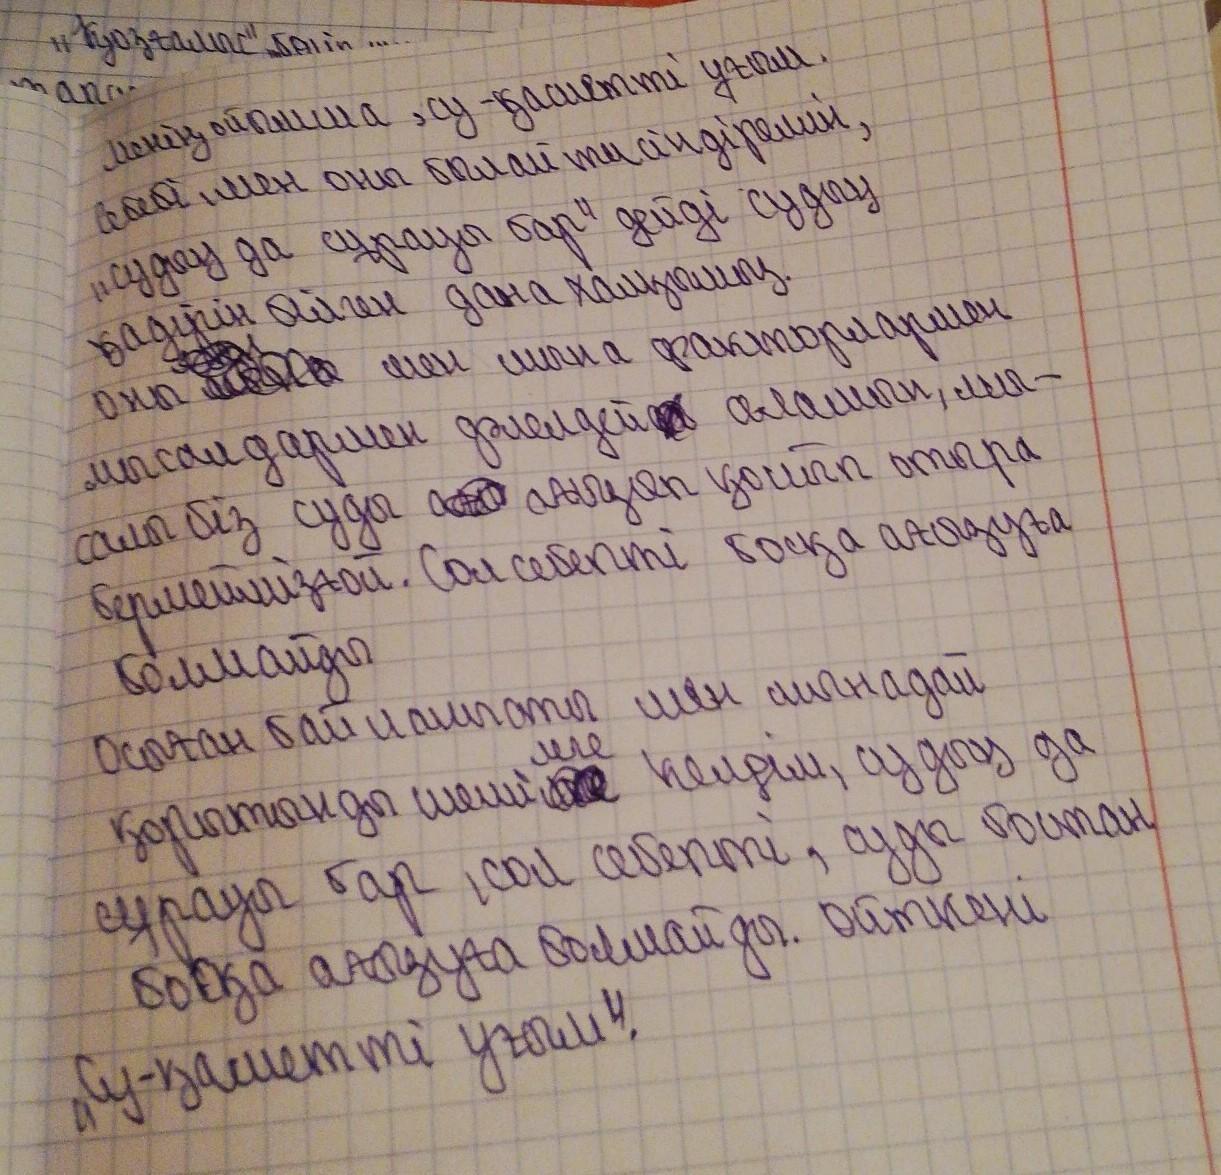 "Қозғалыс" бөліп ....
менің ойымша, су - қасиетті ұғым.
себебі, мен оны былай түсіндіремін,
"судың да сұрауы бар" дейді судың
қадірін білген дана халқымыз.
оны мен мына факторлармен
мысалдармен дәлелдей аламын, мы-
салы біз суды ағызып қойып отыра
бермейміз ғой. Сол себепті босқа ағызуға
болмайды
Осыған байланысты мен мынадай
қорытынды шешімге келдім, судың да
сұрауы бар, сол себепті, суды бостан
босқа ағызуға болмайды. Өйткені
"Су-қасиетті ұғым".